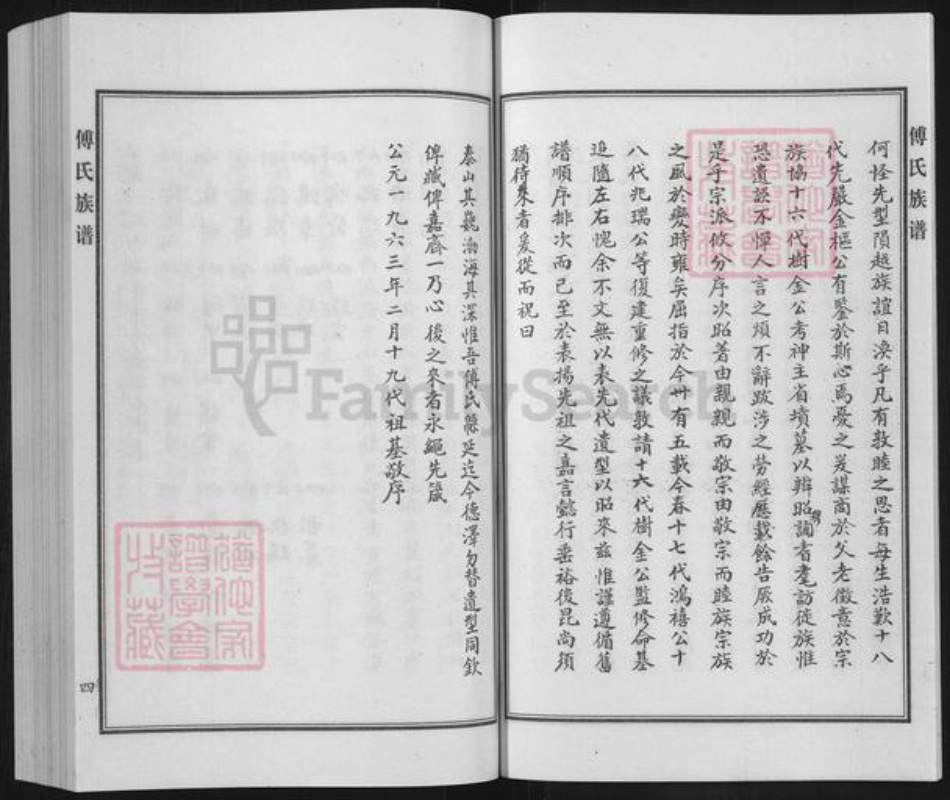 傅氏族谱
何怪先型隕越族誼日渙乎凡有敦睦之思者每生浩歎十八
代先嚴金樞公有鑒於斯心焉憂之爰謀商於父老徵意於宗
族協十六代樹金公考神主省墳墓以辨昭穆詢耆耄訪徒族惟
恐遺誤不憚人言之煩不辭跋涉之勞經歷載餘告厥成功於
是乎宗派攸分序次昭著由親親而敬宗由敬宗而睦族宗族
之風於變時雍矣屈指於今卅有五載今春十七代鴻禧公十
八代兆瑞公等復建重修之議敦請十六代樹金公監修命基
追隨左右愧余不文無以表先代遺型以昭來茲惟謹遵循舊
譜順序排次而已至於表揚先祖之嘉言懿行垂裕後昆尚須
猶待來者爰從而祝曰
泰山其巍渤海其深惟吾傅氏緜延迄今德澤勿替遺型同欽
俾臧俾嘉齊一乃心後之來者永繩先箴
公元一九六三年二月十九代祖基敬序
傅氏族谱
四
FamilySearch